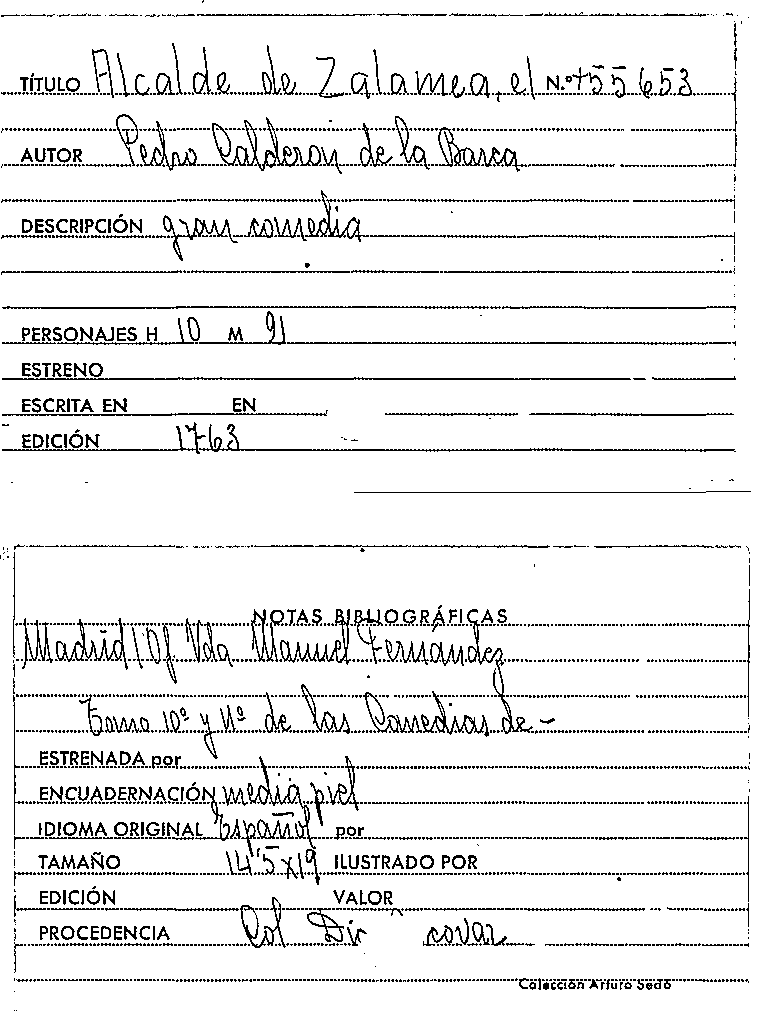 TÍTULO Alcalde de Zalamea, el N.º +55653
AUTOR Pedro Calderon de la Barca
DESCRIPCIÓN gran comedia
PERSONAJES H 10 M 91
ESTRENO
ESCRITA EN EN
EDICIÓN 1763
NOTAS BIBLIOGRÁFICAS
Madrid / Of. Vda Manuel Fernández
Tomo 10º y 11º de las Comedias de -
ESTRENADA por
ENCUADERNACIÓN media piel
IDIOMA ORIGINAL Español por
TAMAÑO 14'5x19 ILUSTRADO POR
EDICIÓN VALOR
PROCEDENCIA Col Dir
Colección Arturo Sedó